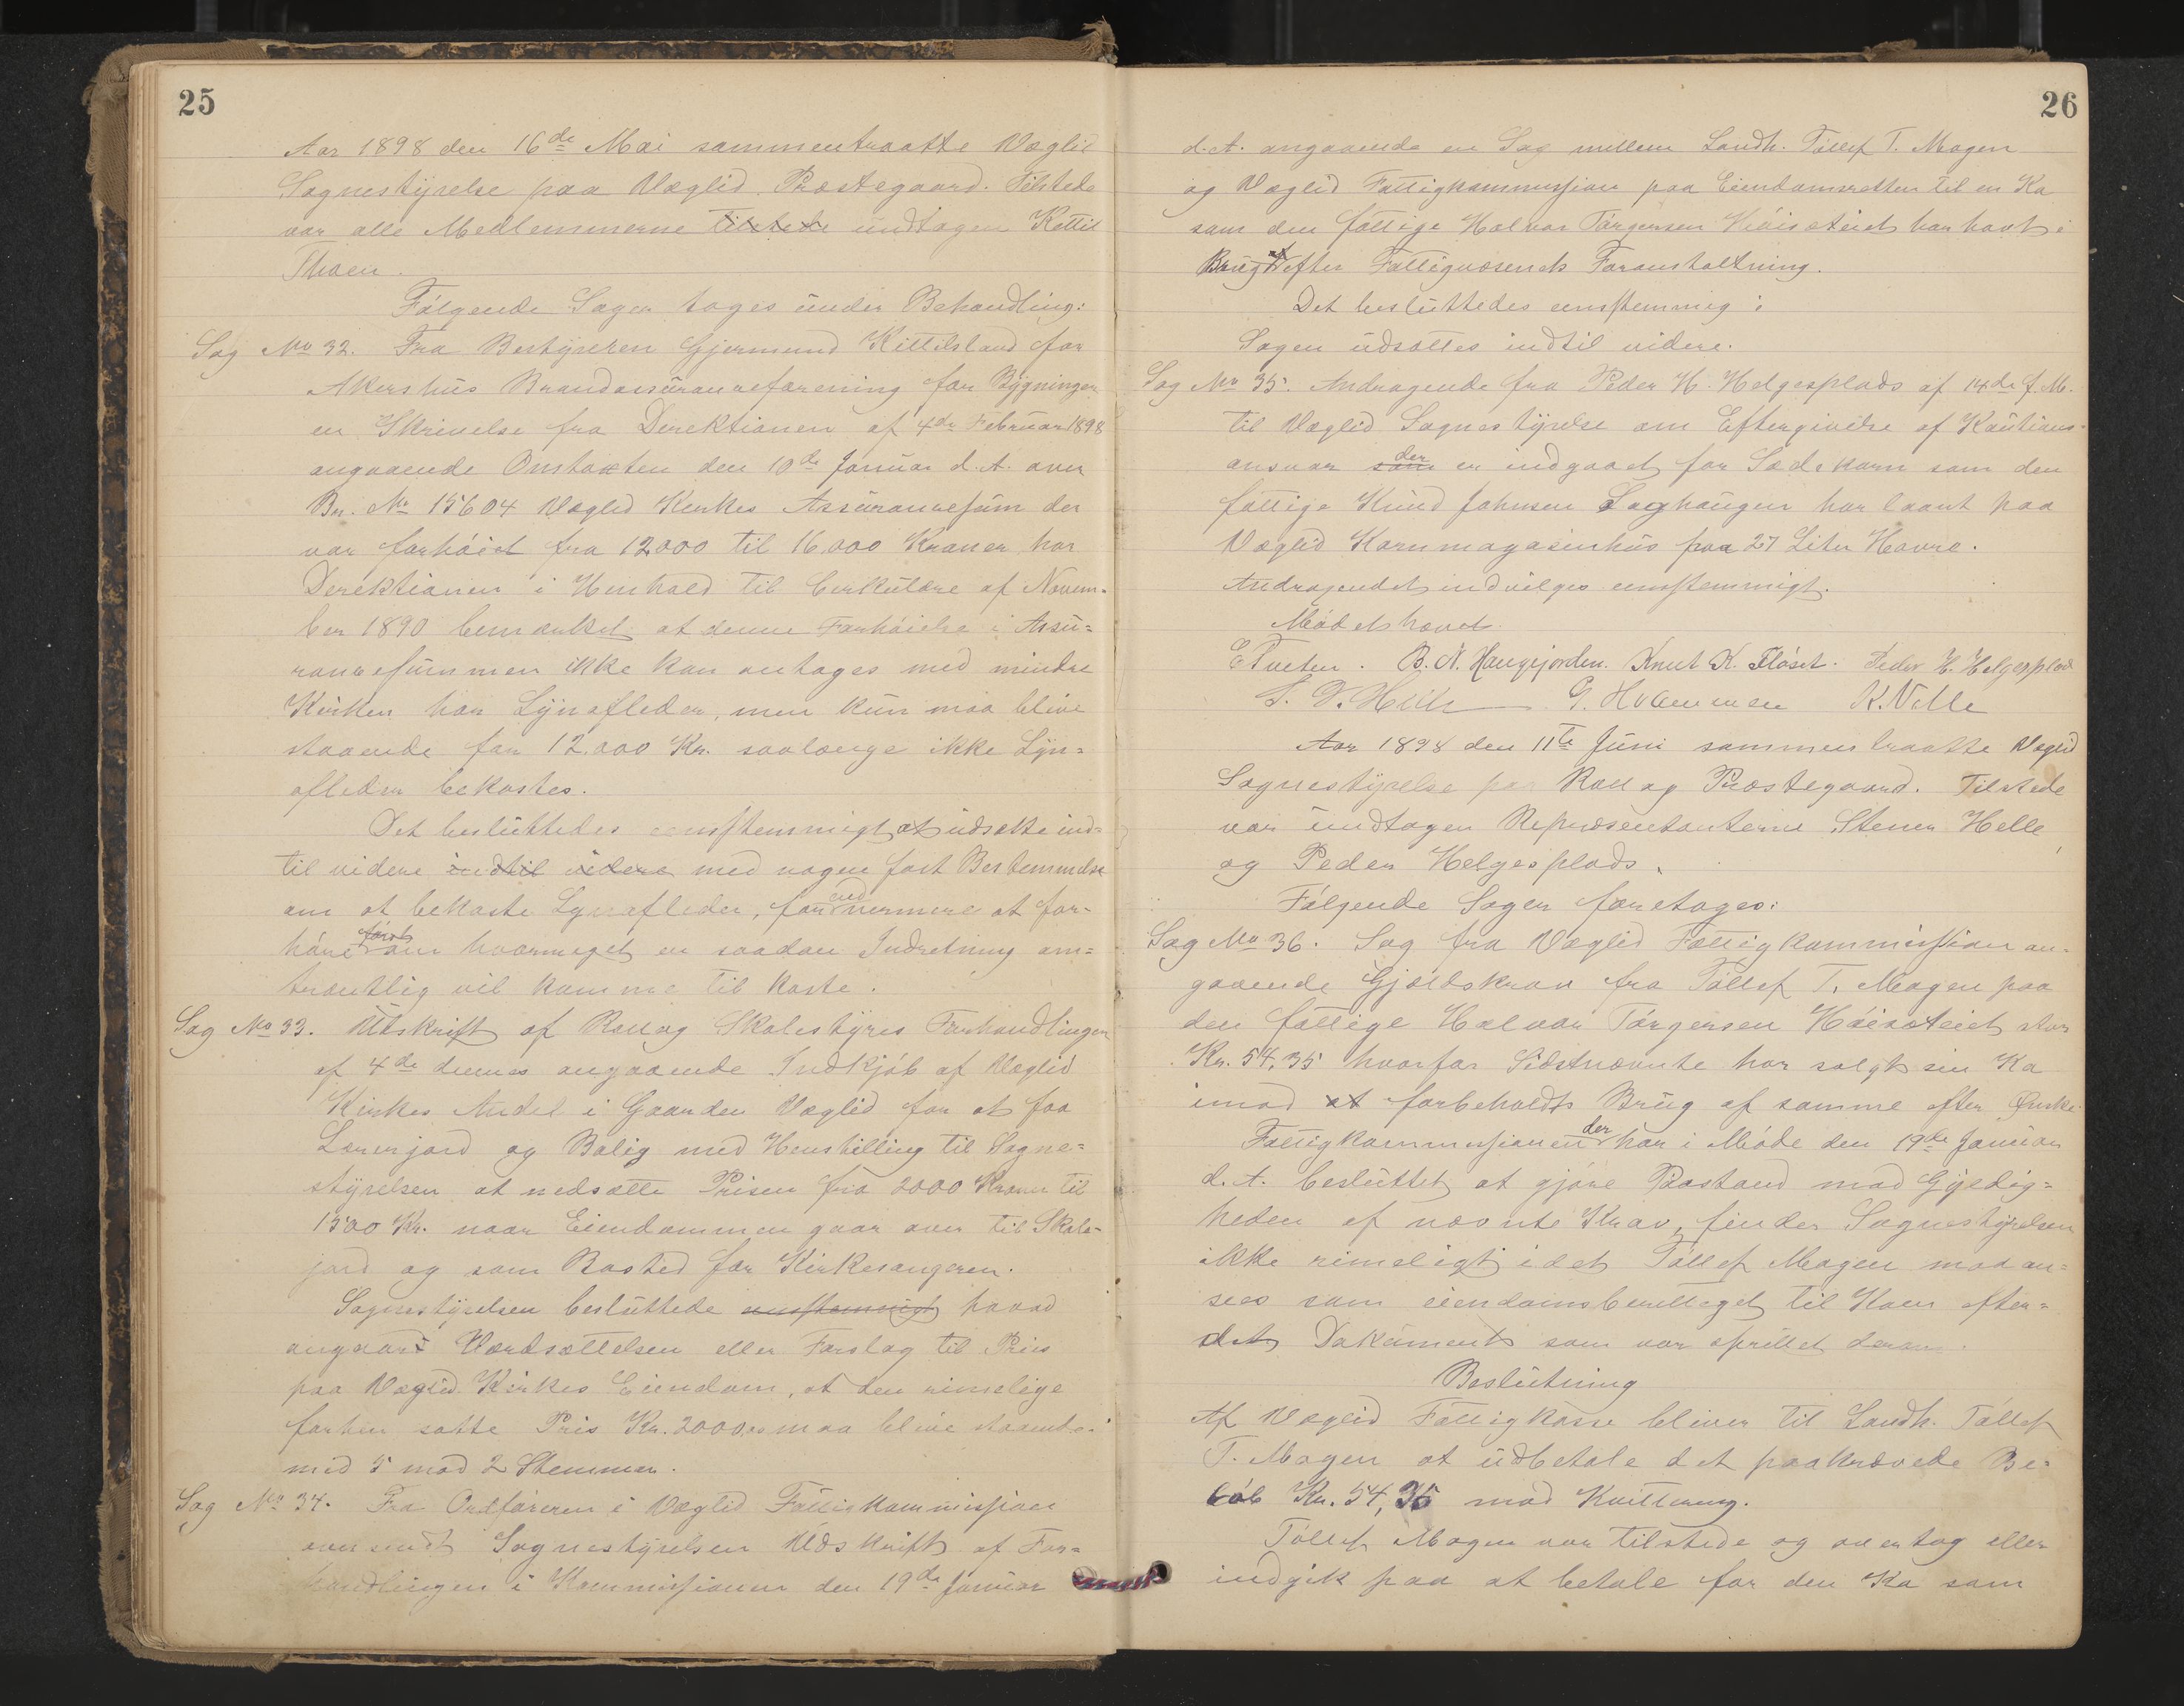 25
Aar 1898 den 16de Mai sammentraatte Væglid
Sognestyrelse paa Væglid Præstegaard. Tilstede
var alle Medlemmerne tilstede undtagen Kittil
Thoen.
Følgende Sager toges under Behandling:
Sag No 32. Fra Bestyreren Gjermund Kittilsland for
Akershus Brandassuranceforening for Bygninger
en Skrivelse fra Direktionen af 4de Februar 1898
angaaende Omtaxten den 10de Januar d. A. over
Br. No 15604 Væglid Kirkes Assurancesum der
var forhøiet fra 12000 til 16.000 Kroner har
Direktionen i Henhold til Cirkulære af Novem-
ber 1890 bemærket at denne Forhøielse i Assu=
rancesummen ikke kan antages med mindre
Kirken har Lynafleder, men kun maa blive
staaende for 12.000 Kr. saalænge ikke Lyn=
afleder bekostes.
Det besluttedes eensstemmigt at udsætte ind=
til videre indtil videre med nogen fast Bestemmelse
om at bekoste Lynafleder, for ved nermere at for-
høre først om hvormeget en saadan Indretning om=
trentlig vil komme til Koste.
Sag No 33. Udskrift af Rollag Skolestyres Forhandlinger
af 4de dennes angaaende Indkjøb af Væglid
Kirkes Andel i Gaarden Væglid for at faa
Lærerjord og Bolig med Henstilling til Sogne=
styrelsen at nedsætte Prisen fra 2000 Kroner til
1500 Kr. naar Eiendommen gaar over til Skole-
jord og som Bosted for Kirkesangeren.
Sognestyrelsen besluttede eensstemmigt hvad
angaar Værdsættelsen eller Forslag til Pris
paa Væglid Kirkes Eiendom, at den rimelige
forhen satte Pris Kr. 2000,00 maa blive staaende
med 5 mod 2 Stemmer.
Sag No 34. Fra Ordføreren i Væglid Fattigkommission
oversendt Sognestyrelsen Udskrift af For=
handlingen i Kommissionen den 19de Januar
26
d. A. angaaende en Sag mellem Landh. Tøllef T. Mogen
og Væglid Fattigkommission paa Eiendomsretten til en Ko
som den fattige Halvor Torgersen Høisæteiet har havt i
Brug efter Fattigvæsenets Foranstaltning.
Det besluttedes eensstemmig:
Sagen udsættes indtil videre.
Sag No 35. Andragende fra Peder H. Helgesplads af 14de f. M.
til Væglid Sognestyrelse om Eftergivelse af Kautions-
ansvar som der er indgaaet for Sædekorn som den
fattige Knud Johnsen Saghaugen har laant paa
Væglid Kornmagasinhus paa 27 Liter Havre.
Andragendet indvilges eensstemmigt.
Mødet hævet.
E Tveten. B. N. Haugjorden. Knut K. Fløset. Peder H. Helgesplad
S. O. Helle G. Hvammen K. Nolle
Aar 1898 den 11te Juni sammentraatte Væglid
Sognestyrelse paa Rollag Præstegaard. Tilstede
var undtagen Repræsentanterne Stener Helle
og Peder Helgesplads.
Følgende Sager foretoges:
Sag No 36. Sag fra Væglid Fattigkommission an-
gaaende Gjældskrav fra Tøllef T. Mogen paa
den fattige Halvor Torgersen Høisæteiet stor
Kr. 54,35 hvorfor Sidstnævnte har solgt sin Ko
imod at forbeholdt Brug af samme efter Ønske.
Fattigkommissionen der har i Møde den 19de Januar
d. A. besluttet at gjøre Paastand mod Gyldig=
heden af nævnte Krav, finder Sognestyrelsen
ikke rimeligt idet Tøllef Mogen maa an=
sees som eiendomsberettiget til Koen efter=
det Dokument som var oprettet derom.
Beslutning
Af Væglid Fattigkasse bliver til Landh. Tøllef
T. Mogen at udbetale det paakrævede Be-
løb Kr. 54,35 mod Kvittering.
Tøllef Mogen var tilstede og overtog eller
indgik paa at betale for den Ko som